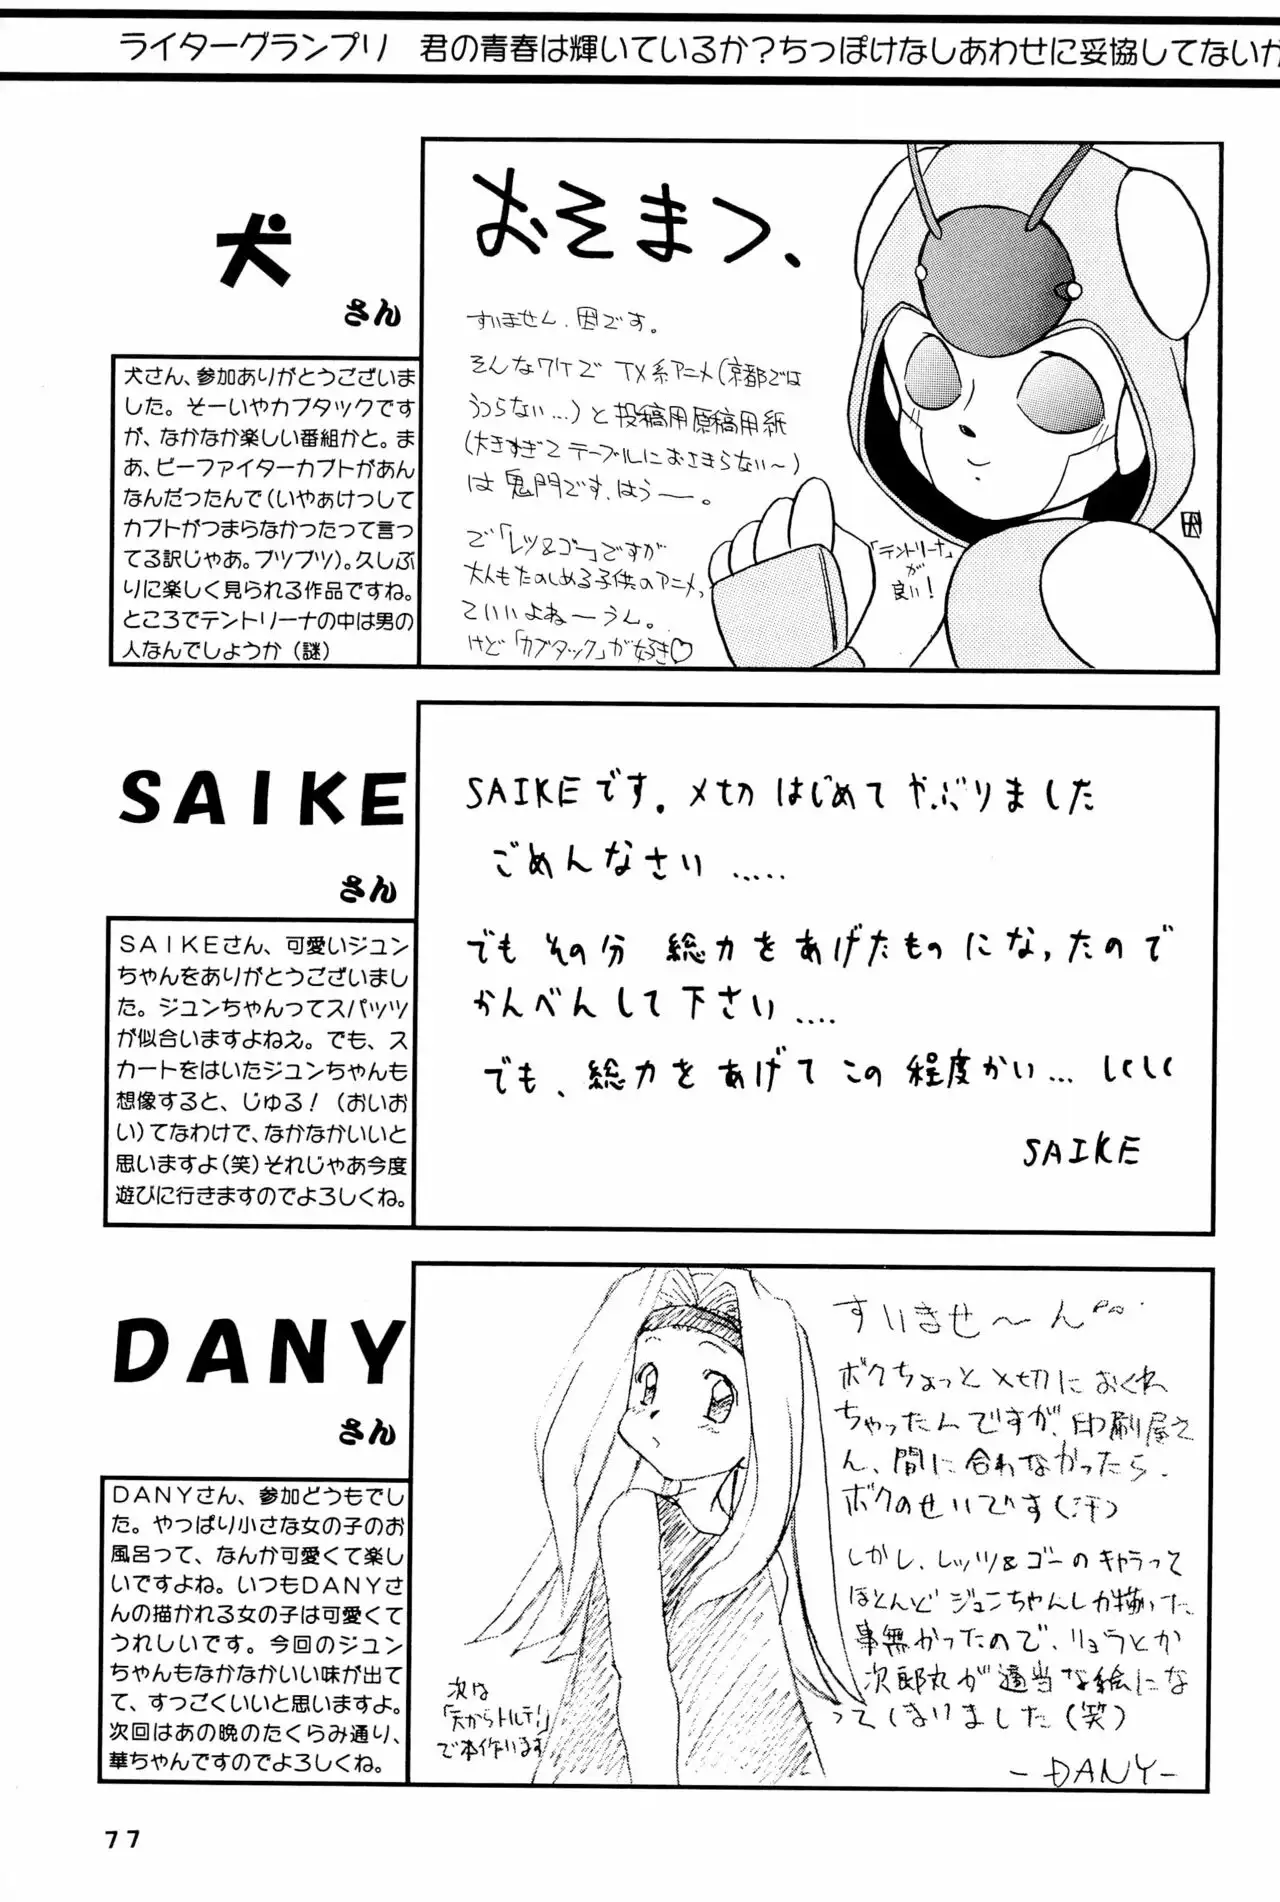 ライターグランプリ　君の青春は輝いているか？ちっぽけなしあわせに妥協してないか
犬
さん
犬さん、参加ありがとうございま
した。そーいやカブタックです
が、なかなか楽しい番組かと。ま
あ、ビーファイターカブトがあん
なんだったんで（いやぁけっして
カブトがつまらなかったって言っ
てる訳じゃあ。ブツブツ）。久しぶ
りに楽しく見られる作品ですね。
ところでテントリーナの中は男の
人なんでしょうか（謎）
おそまつ、
すいません、因です。
そんなワケで TX系アニメ（京都では
うつらない…）と投稿用原稿用紙
（大きすぎてテーブルにおさまらない〜）
は鬼門です、はうー。
で「レツ&ゴー」ですが
大人もたのしめる子供のアニメ、
ていいよねーうん。
けど「カブタック」が好き♡
「テントリーナ」
が
良い！
SAIKE
さん
ＳＡＩＫＥさん、可愛いジュン
ちゃんをありがとうございまし
た。ジュンちゃんってスパッツ
が似合いますよねえ。でも、ス
カートをはいたジュンちゃんも
想像すると、じゅる！（おいお
い）てなわけで、なかなかいいと
思いますよ（笑）それじゃあ今度
遊びに行きますのでよろしくね。
SAIKEです。〆切はじめてやぶりました
ごめんなさい.....
でもその分 総力をあげたものになったので
かんべんして下さい....
でも、総力をあげてこの程度かい... しくしく
SAIKE
DANY
さん
ＤＡＮＹさん、参加どうもでし
た。やっぱり小さな女の子のお
風呂って、なんか可愛くて楽し
いですよね。いつもＤＡＮＹさ
んの描かれる女の子は可愛くて
うれしいです。今回のジュン
ちゃんもなかなかいい味が出て
て、すっごくいいと思いますよ。
次回はあの晩のたくらみ通り、
華ちゃんですのでよろしくね。
すいませ〜ん
ボクちょっと〆切におくれ
ちゃったんですが、印刷屋さ
ん、間に合わなかったら、
ボクのせいです（汗）
しかし、レッツ&ゴーのキャラって
ほとんどジュンちゃんしか描いた
事無かったので、リョウとか
次郎丸が適当な絵にな
ってしまりました（笑）
-DANY-
次は
「天からトルテ！」
で本作ります
77